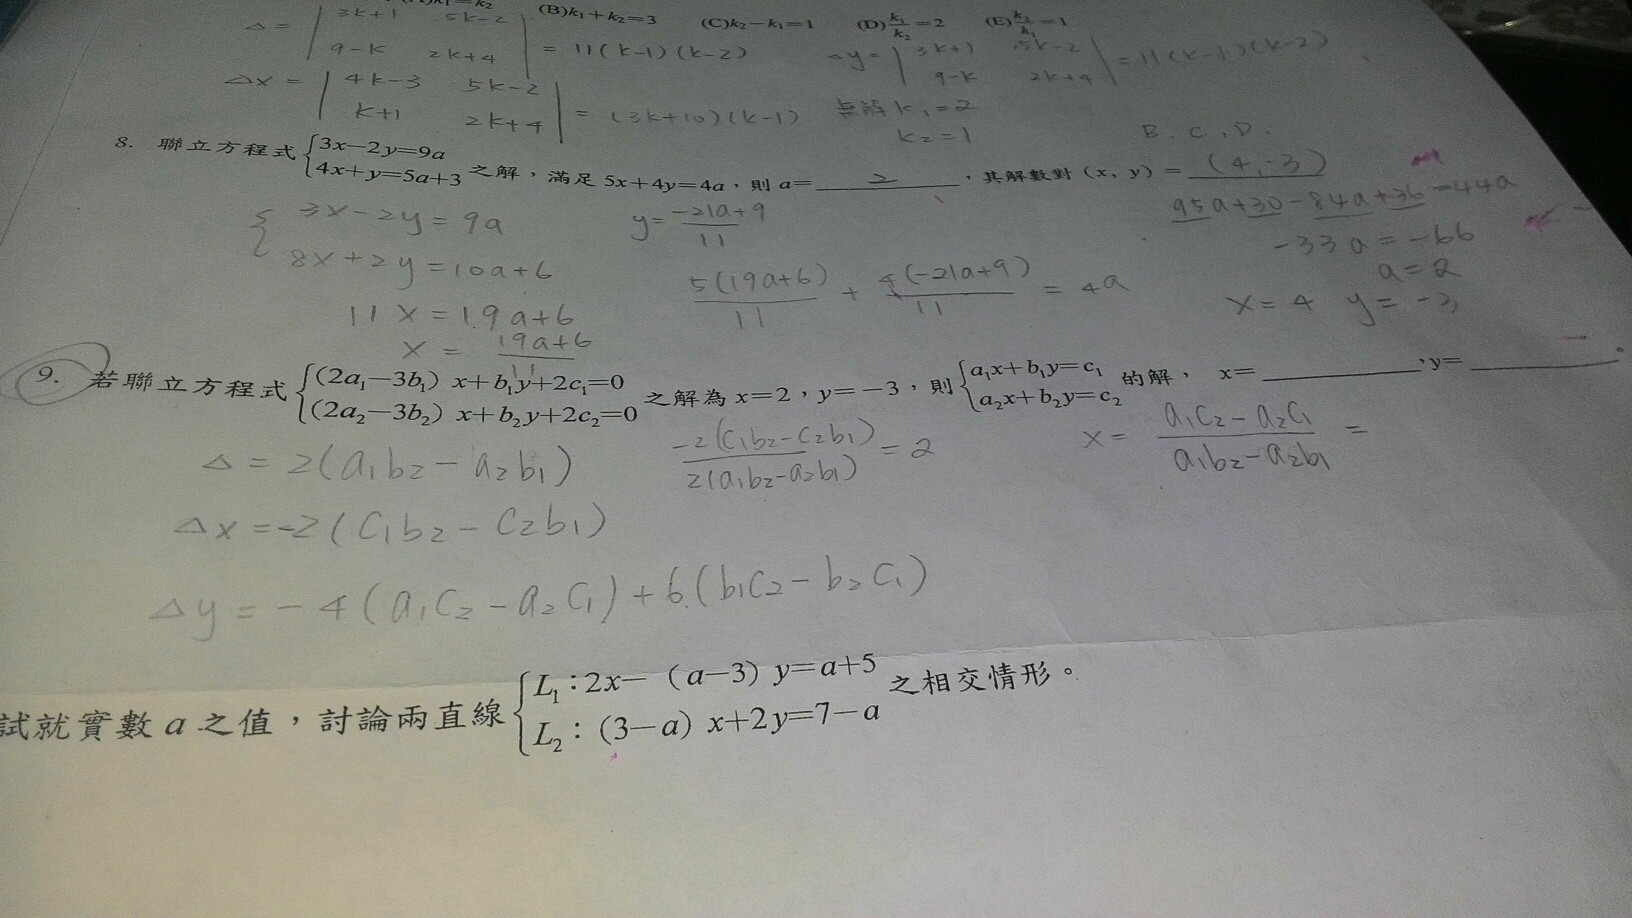 (B)k₁+k₂=3 (C)k₂−k₁=1 (D)k₁/k₂=2 (E)k₂/k₁=1
Δ = | 3k+1 5k−2 |
| 9−k 2k+4 | = 11(k−1)(k−2)
Δy = | 3k+1 5k−2 |
| 9−k 2k+4 | = 11(k−1)(k−2)
Δx = | 4k−3 5k−2 |
| k+1 2k+4 | = (3k+10)(k−1)
無解 k₁=2
k₂=1
B.C.D.
8. 聯立方程式{3x−2y=9a
4x+y=5a+3 之解，滿足 5x+4y=4a，則 a= 2 ，其解數對 (x, y) = (4,−3)
{ 3x−2y=9a
8x+2y=10a+6
11x=19a+6
x = 19a+6 / 11
y= −21a+9 / 11
5(19a+6) / 11 + 4(−21a+9) / 11 = 4a
95a+30−84a+36=44a
−33a=−66
a=2
x=4 y=−3
9. 若聯立方程式{(2a₁−3b₁) x+b₁y+2c₁=0
(2a₂−3b₂) x+b₂y+2c₂=0 之解為 x=2，y=−3，則{a₁x+b₁y=c₁
a₂x+b₂y=c₂ 的解， x= ，y= 。
Δ = 2(a₁b₂−a₂b₁)
−2(c₁b₂−c₂b₁) / 2(a₁b₂−a₂b₁) = 2
x= a₁c₂−a₂c₁ / a₁b₂−a₂b₁ =
Δx =−2(c₁b₂−c₂b₁)
Δy = −4(a₁c₂−a₂c₁)+6(b₁c₂−b₂c₁)
試就實數 a 之值，討論兩直線{L₁：2x−（a−3）y=a+5
L₂：(3−a) x+2y=7−a 之相交情形。